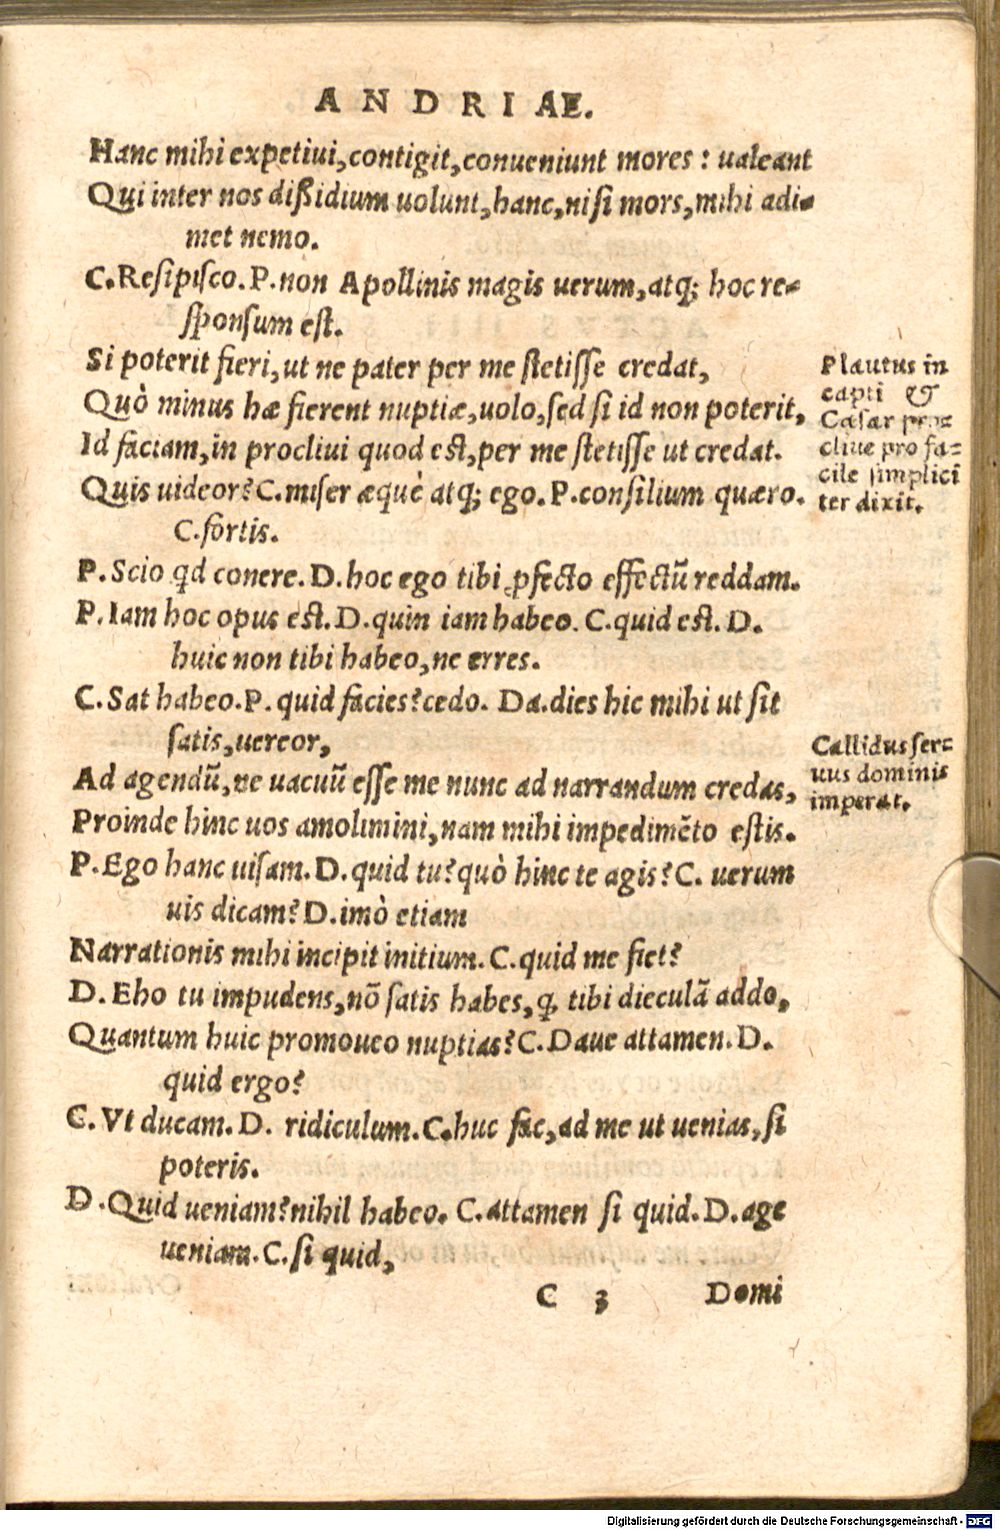 ANDRIAE.
Hanc mihi expetiui, contigit, conueniunt mores: ualeant
Qui inter nos dißidium uolunt, hanc, nisi mors, mihi adi-
met nemo.
C. Resipisco. P. non Apollinis magis uerum, atq; hoc re-
sponsum est.
Si poterit fieri, ut ne pater per me stetisse credat,
Quò minus hæ fierent nuptiæ, uolo, sed si id non poterit,
Id faciam, in procliui quod est, per me stetisse ut credat.
Quis uideor? C. miser æquè atq; ego. P. consilium quæro.
C. fortis.
P. Scio qd conere. D. hoc ego tibi ꝓfecto effectũ reddam.
P. Iam hoc opus est. D. quin iam habeo. C. quid est. D.
huic non tibi habeo, ne erres.
C. Sat habeo. P. quid facies? cedo. Da. dies hic mihi ut sit
satis, uereor,
Ad agendũ, ne uacuũ esse me nunc ad narrandum credas,
Proinde hinc uos amolimini, nam mihi impedimẽto estis.
P. Ego hanc uisam. D. quid tu? quò hinc te agis? C. uerum
uis dicam? D. imò etiam
Narrationis mihi incipit initium. C. quid me fiet?
D. Eho tu impudens, nõ satis habes, ꝙ tibi dieculã addo,
Quantum huic promoueo nuptias? C. Daue attamen. D.
quid ergo?
C. Vt ducam. D. ridiculum. C. huc fac, ad me ut uenias, si
poteris.
D. Quid ueniam? nihil habeo. C. attamen si quid. D. age
ueniam. C. si quid,
C 3 Domi
Plautus in
capti &
Cæsar pro-
cliue pro fa-
cile simplici
ter dixit.
Callidus ser-
uus dominis
imperat.
Digitalisierung gefördert durch die Deutsche Forschungsgemeinschaft - DFG